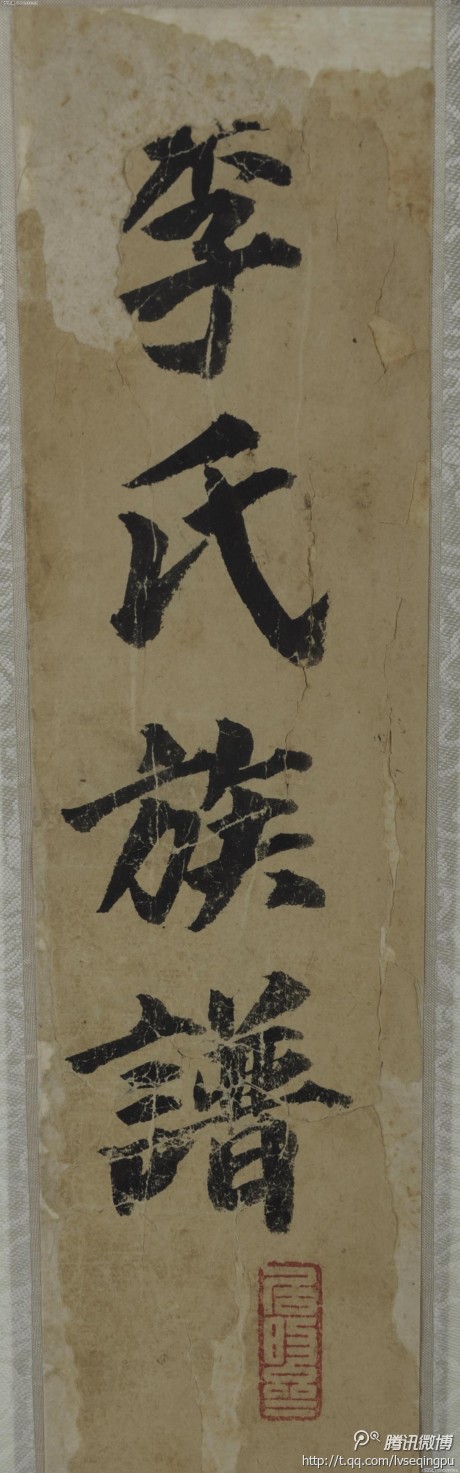 李氏族譜
腾讯微博
http://t.qq.com/lvseqingpu